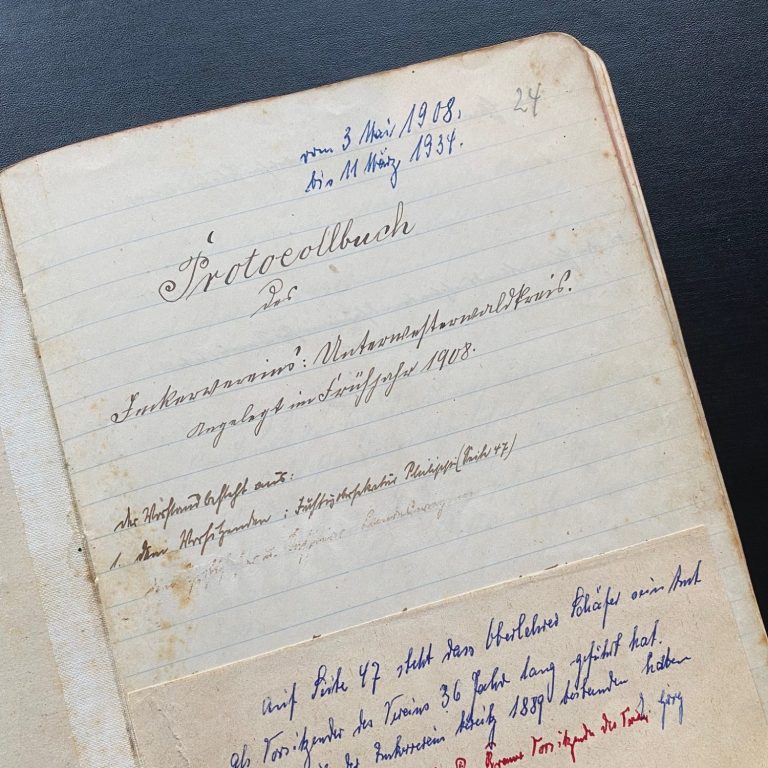 24
vom 3 Mai 1908.
bis 11 März 1934.
Protocollbuch
des
Imkervereins: Unterwesterwaldkreis.
Angelegt im Frühjahr 1908.
der Vorstand besteht aus:
1. dem Vorsitzenden: Justizobersekretär Philippi (Seite 47)
Auf Seite 47 steht dass Oberlehrer Schäfer sein Amt
als Vorsitzender des Vereins 36 Jahr lang geführt hat.
der Imkerverein bereitz 1889 bestanden haben
Görg
Vorsitzende des